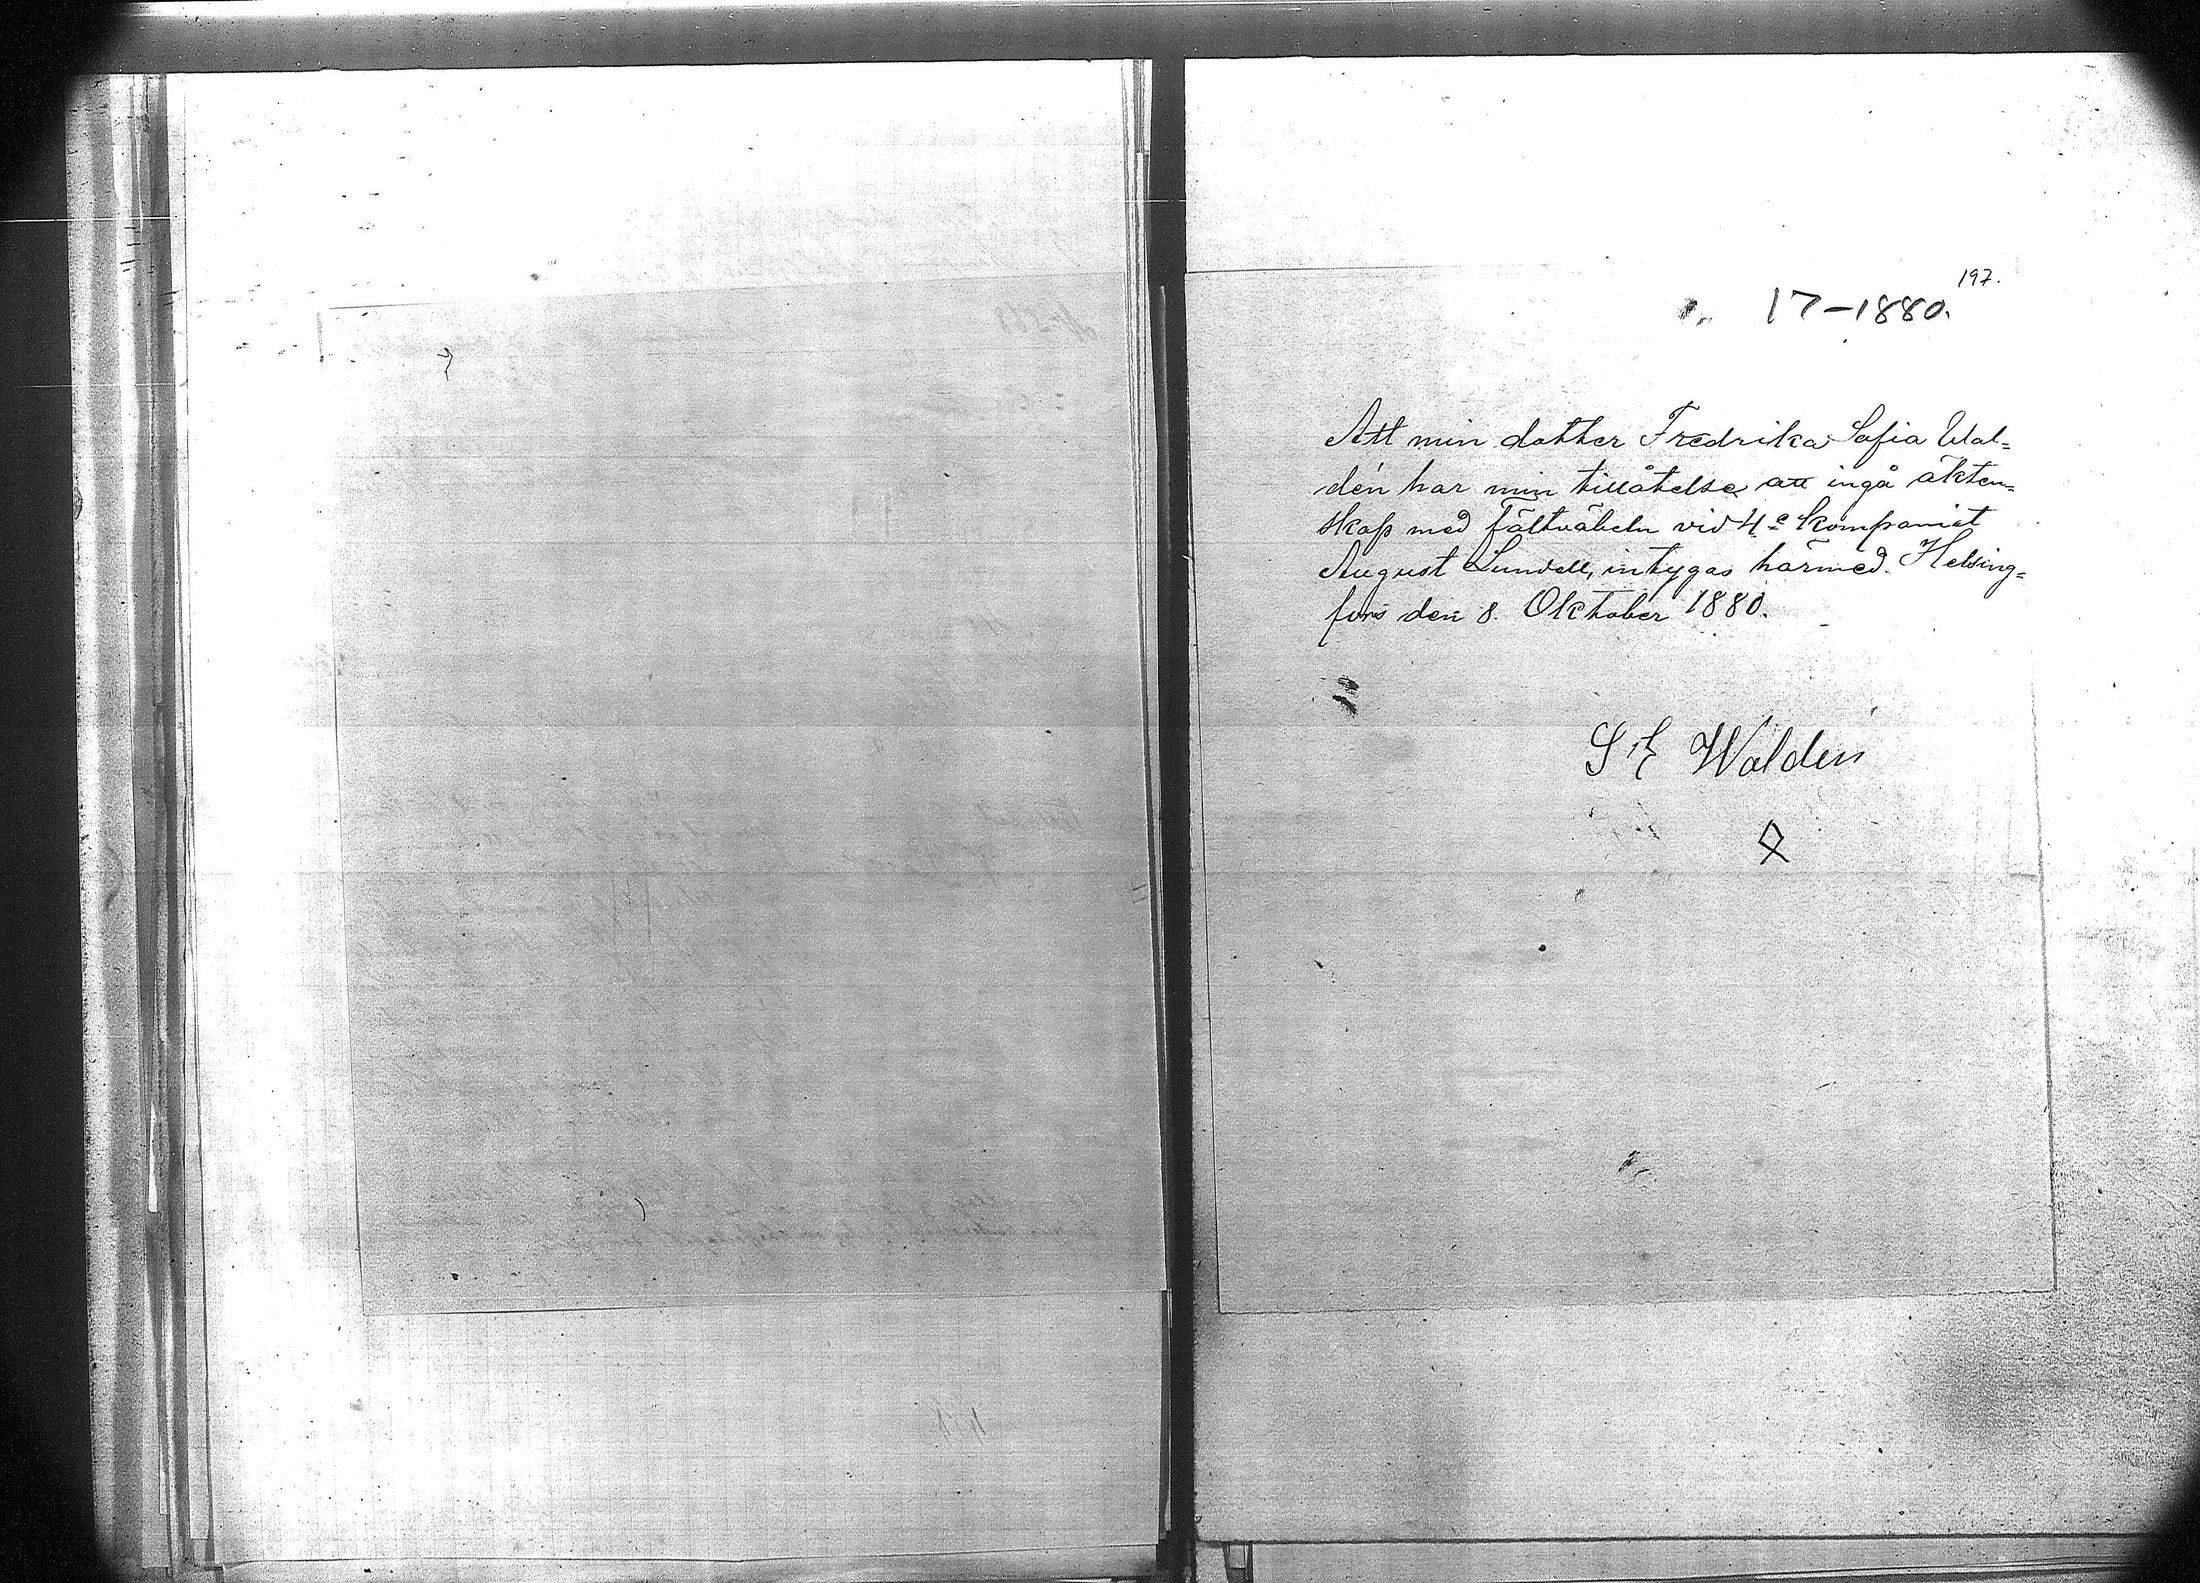 197.
17-1880.
Att min dotter Fredrika Sofia Wal=
dén har min tillåtelse att ingå äkten=
skap med fältväbeln vid 4=e Kompaniet
August Lundell, intygas härmed. Helsing=
fors den 8. Oktober 1880.
Waldén